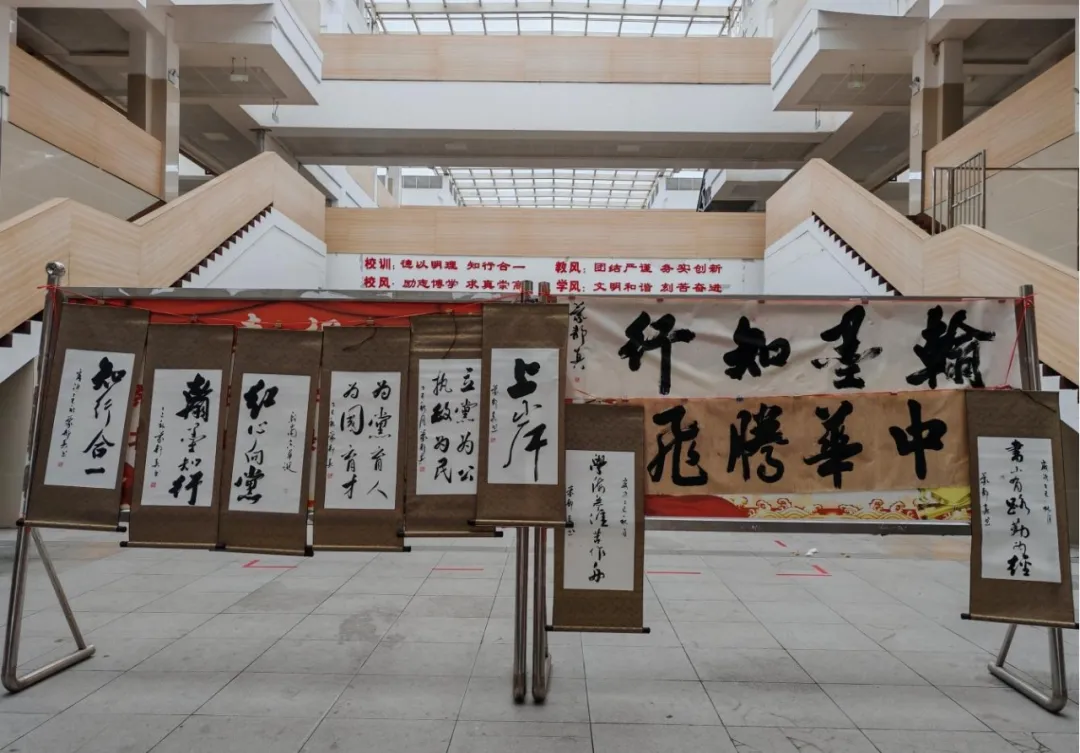 校训：德以明理 知行合一
校风：励志博学 求真崇高
教风：团结严谨 务实创新
学风：文明和谐 刻苦奋进
知行合一
翰墨知行
红心向党
为党育人
为国育才
立党为公
执政为民
上岸
翰墨知行
中華騰飛
學海無涯苦作舟
書山有路勤为径